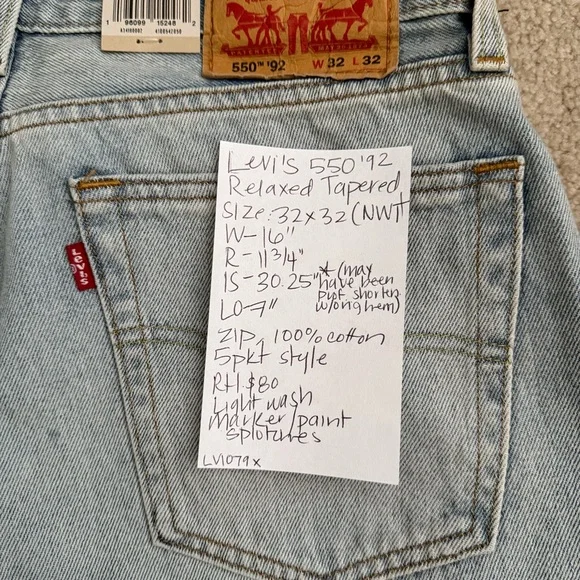 1 98099 15248 2
A34190002 4100542050
550™'92 W32 L32
LEVI'S
Levi's 550 '92
Relaxed Tapered
Size: 32x32 (NWT
W-16"
R-11 3/4"
IS-30.25" *(may
have been
prof. shorten
w/orig hem)
LO-7"
ZIP, 100% cotton
5pkt style
Rtl. $80
Light wash
marker/paint
splotches
LV1079x